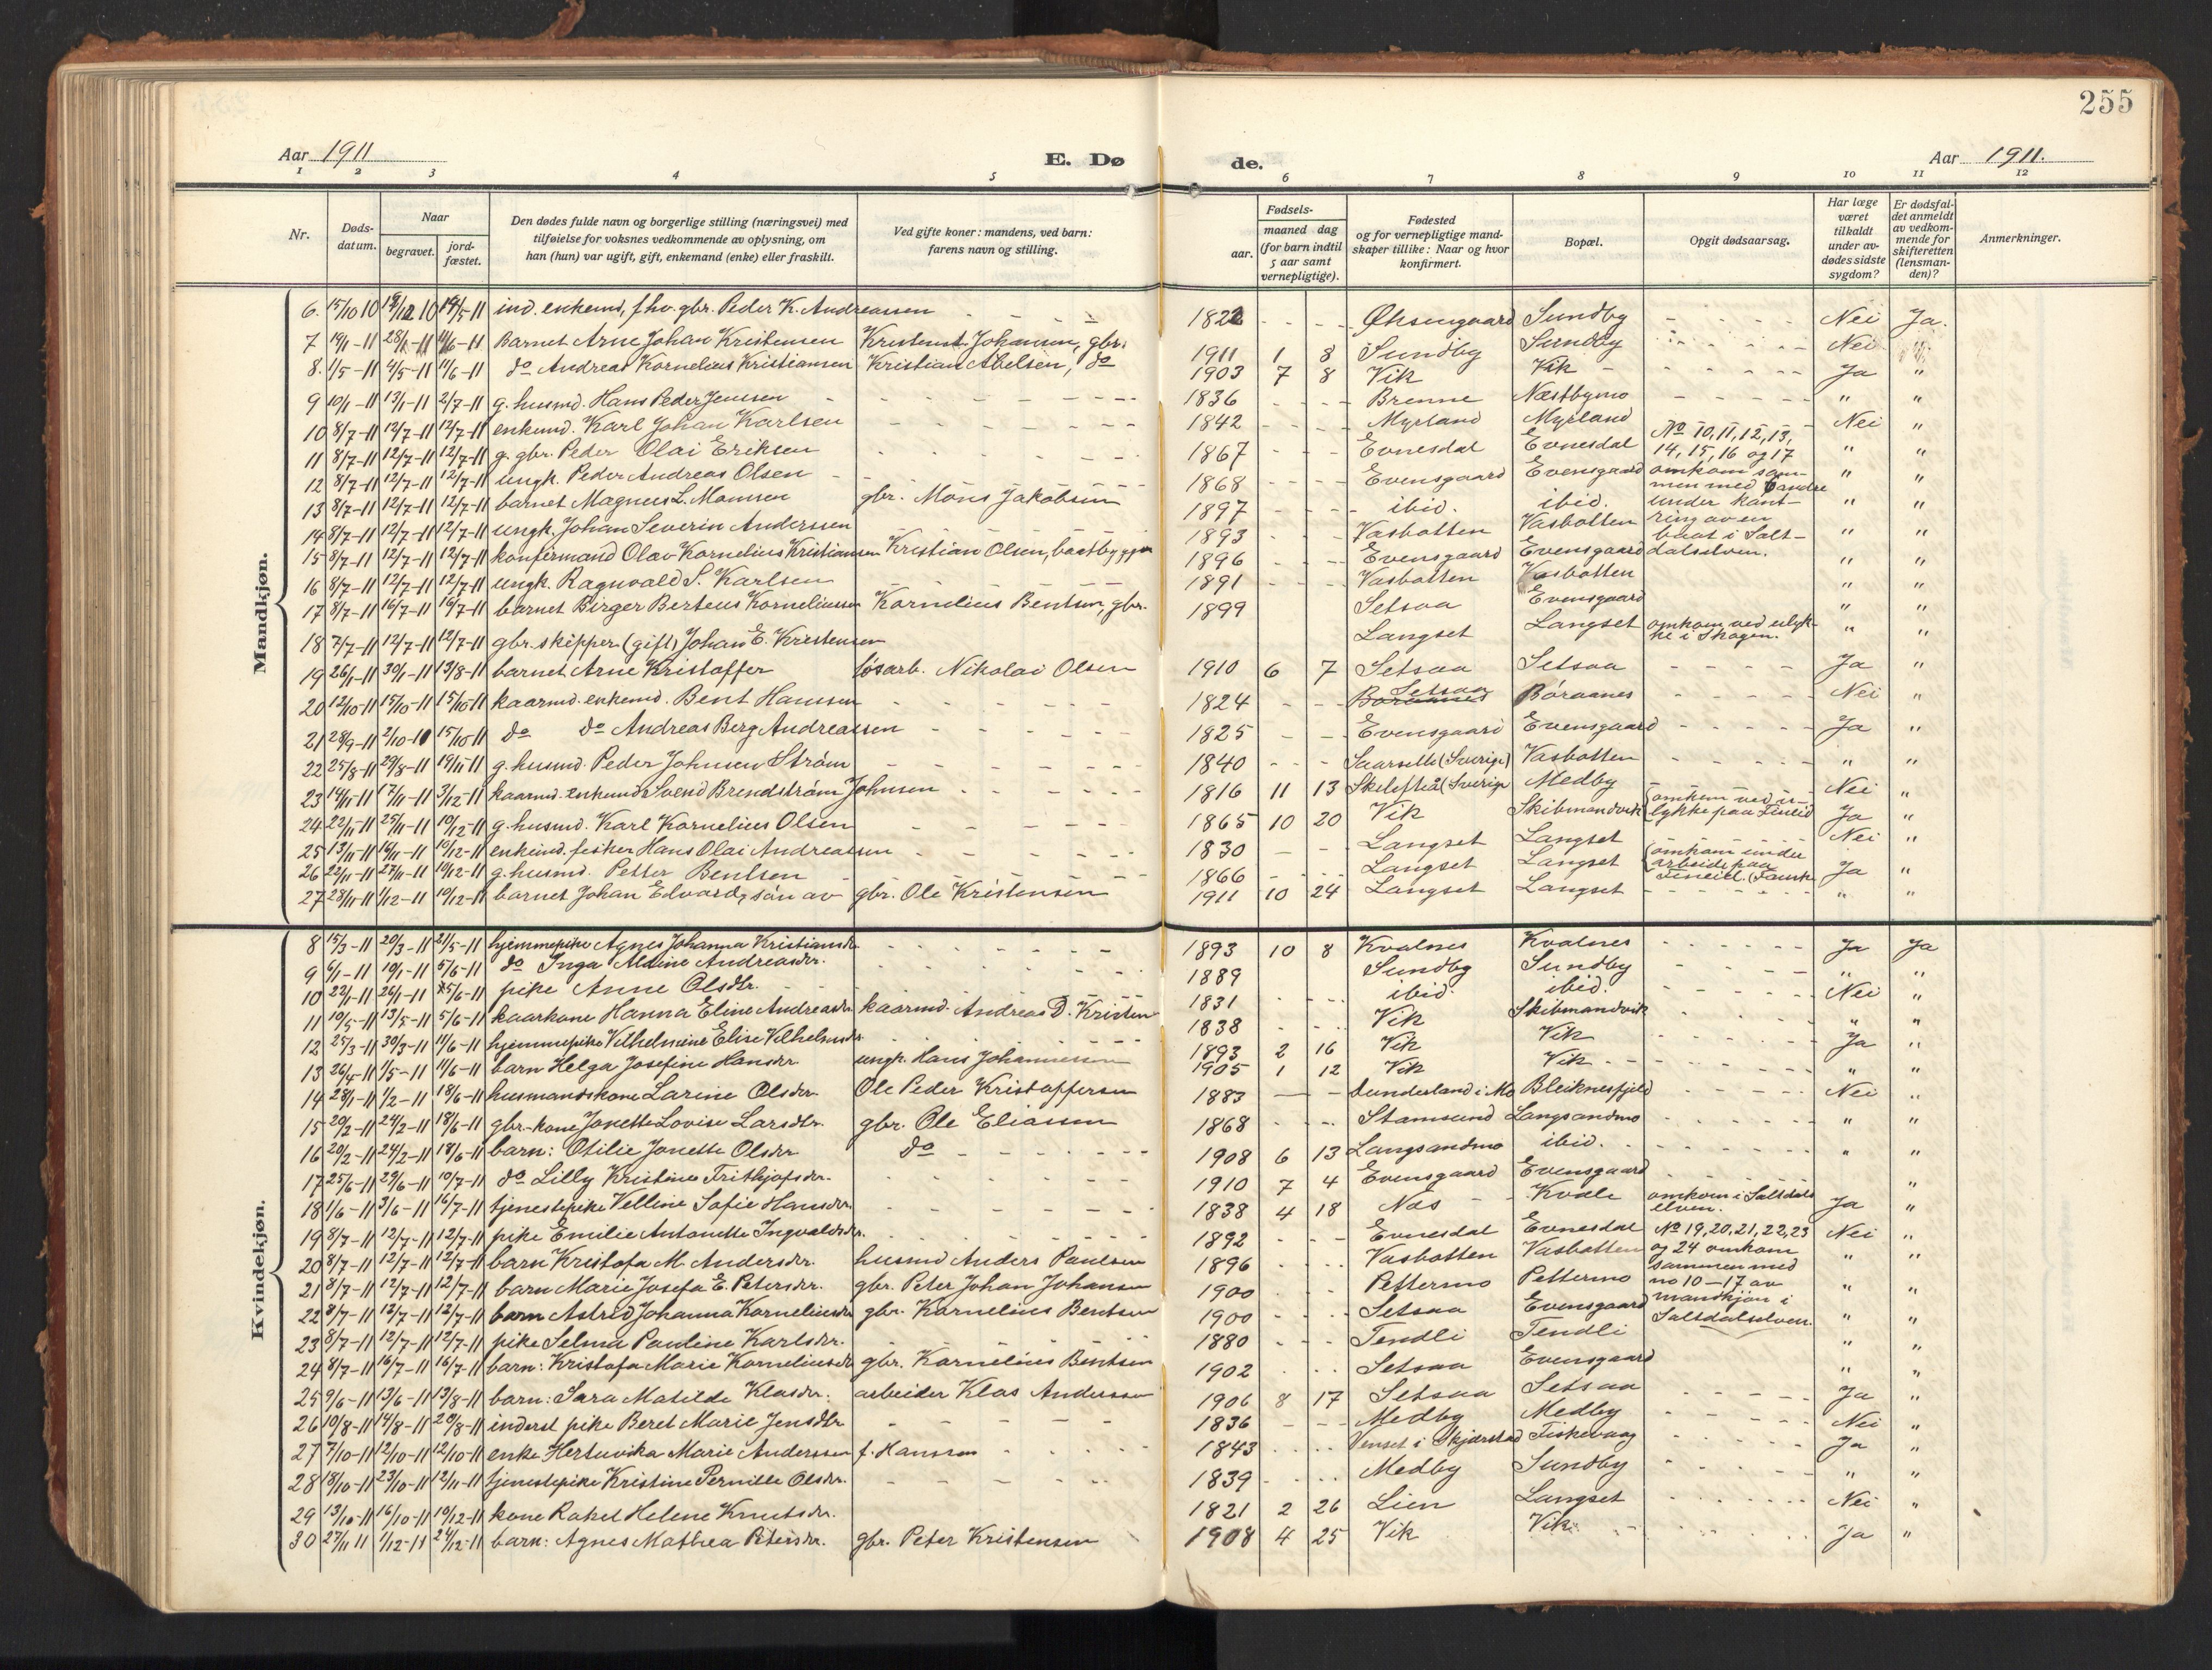 255
Aar 1911
E. Dø
de.
Aar 1911.
1 2 3 4 5 6 7 8 9 10 11 12
Nr.
Døds-
datum.
Naar
begravet.
jord-
fæstet.
Den dødes fulde navn og borgerlige stilling (næringsvei) med
tilføielse for voksnes vedkommende av oplysning, om
han (hun) var ugift, gift, enkemand (enke) eller fraskilt.
Ved gifte koner: mandens, ved barn:
farens navn og stilling.
Fødsels-
aar.
maaned dag
(for barn indtil
5 aar samt
vernepligtige).
Fødested
og for vernepligtige mand-
skaper tillike: Naar og hvor
konfirmert.
Bopæl.
Opgit dødsaarsag.
Har læge
været
tilkaldt
under av-
dødes sidste
sygdom?
Er dødsfal-
det anmeldt
av vedkom-
mende for
skifteretten
(lensman-
den)?
Anmerkninger.
Mandkjøn.
6. 15/10 10 ind. enkemd, fhv. gbr. Peder K. Andreassen 1822 Øksengaard Sundby Nei Ja.
7 19/1-11 Barnet Arne Johan Kristensen Johansen, gbr. 1911 1 8 Sundby Sundby Nei
8. 1/5-11 4/5-11 11/6-11 do Andreas Kornelius Kristiansen Kristian Abelsen, do 1903 7 8 Vik Vik Ja "
9 10/1-11 13/1-11 2/7-11 g. husmd. Hans Peder Jensen 1836 Brenne Næstbymo " "
10 8/7-11 12/7-11 12/7-11 enkemd. Karl Johan Karlsen 1842 Myrland Myrland Nei "
11 8/7-11 12/7-11 12/7-11 g. gbr. Peder Olai Eriksen 1867 Evnesdal Evnesdal No 10, 11, 12, 13, " "
12 8/7-11 12/7-11 12/7-11 ungk. Peder Andreas Olsen 1868 Evensgaard Evensgaard 14, 15, 16 og 17 " "
13 8/7-11 12/7-11 12/7-11 barnet Magnus L. Monsen gbr. Mons Jakobsen 1897 ibid. ibid. omkom sam- " "
men med 6 andre
under kant-
14 8/7-11 12/7-11 12/7-11 ungk. Johan Severin Anderssen 1893 Vasbotten Vasbotten ring av en " "
15 8/7-11 12/7-11 12/7-11 konfirmand Olav Kornelius Kristiansen Kristian Olsen, baatbygger 1896 Evensgaard Evensgaard baat i Salt- " "
dalselven.
16 8/7-11 12/7-11 12/7-11 ungk. Ragnvald S. Karlsen 1891 Vasbotten Vasbotten " "
17 8/7-11 16/7-11 16/7-11 barnet Birger Berteus Korneliussen Kornelius Bentsen, gbr. 1899 Setsaa Evensgaard " "
18 7/7-11 12/7-11 12/7-11 gbr. skipper (gift) Johan E. Kristensen Langset Langset omkom ved ulyk- " "
ke i Skogen.
19 26/1-11 30/1-11 13/8-11 barnet Arne Kristoffer løsarb. Nikolai Olsen 1910 6 7 Setsaa Setsaa Ja "
20 12/10-11 15/10-11 15/10-11 kaarmd. enkemd. Bent Hansen 1824 Setsaa Boraanes Boraanes Nei "
21 28/9-11 2/10-10 15/10-11 do do Andreas Berg Andreassen 1825 Evensgaard Evensgaard Ja "
22 25/8-11 29/8-11 19/11 11 g. husmd. Peder Johnsen Strøm 1840 Saarselle (Sverige) Vasbotten " "
23 14/11-11 17/11-11 3/12-11 kaarmd. enkemd Svend Brendstrøm Johnsen 1816 11 13 Skelefteå (Sverige Medby Nei "
24 22/11-11 25/11-11 10/12-11 g. husmd. Karl Kornelius Olsen 1865 10 20 Vik Skibmandvik omkom ved u- Ja "
lykke paa Fineid
25 13/11-11 10/12-11 enkemd. fisker Hans Olai Andreassen 1830 Langset Langset Nei "
26 22/11-11 27/11-11 10/12-11 g. husmd. Petter Bentsen 1866 Langset Langset omkom under Ja "
arbeide paa
Fineid (Fausk
27 28/11-11 1/12-11 10/12-11 barnet Johan Edvard, søn av gbr. Ole Kristensen 1911 10 24 Langset Langset " "
Kvindekjøn.
8 15/3-11 20/3-11 21/5-11 hjemmepike Agnes Johanna Kristiansdr. 1893 10 8 Kvalnes Kvalnes Ja Ja
9 6/1-11 10/1-11 5/6-11 do Inga Aldine Andreasdr. 1889 Sundby Sundby " "
10 22/1-11 26/1-11 5/6-11 pike Anne Olsdtr. 1831 ibid. ibid. Nei "
11 10/5-11 13/5-11 5/6-11 kaarkone Hanna Eline Andreasdr kaarmd. Andreas D. Kristen 1838 Vik Skibmandvik " "
12 25/3-11 30/3-11 11/6-11 hjemmepike Vilhelmine Elise Vilhelmsdr. 1893 2 16 Vik Vik Ja "
13 26/4-11 1/5-11 11/6-11 barn Helga Josefine Hansdr. ungk. Hans Johannessen 1905 1 12 Vik Vik " "
14 28/1-11 1/2-11 18/6-11 husmandskone Larine Olsdr. Ole Peder Kristoffersen 1883 Dunderland i Mo Bleiknesfjeld Nei "
15 20/2-11 24/2-11 18/6-11 gbr.-kone Jonette Lovise Larsdtr. gbr. Ole Eliassen 1868 Stamsund Langsandmo " "
16 20/2-11 24/2-11 18/6-11 barn: Otilie Jonette Olsdr do 1908 6 13 Langsandmo ibid. "
17 25/6-11 29/6-11 10/7-11 do Lilly Kristine Frithjofsdr. 1910 7 4 Evensgaard Evensgaard "
18 1/6-11 3/6-11 16/7-11 tjenestepike Velline Sofie Hansdr. 1838 4 18 Nes Kvale omkom i Saltdals Ja "
elven.
19 8/7-11 12/7-11 12/7-11 pike Emilie Antonette Ingvaldsdr. 1892 Evnesdal Evnesdal No 19, 20, 21, 22, 23 Nei "
20 8/7-11 12/7-11 12/7-11 barn Kristofa M. Andersdr. husmd Anders Paulsen 1896 Vasbotten Vasbotten og 24 omkom " "
21 8/7-11 12/7-11 12/7-11 barn Marie Josefa E. Petersdr. gbr. Peter Johan Johansen 1900 Pettermo Pettermo sammen med " "
no 10-17 av
22 8/7-11 12/7-11 12/7-11 barn Astrid Johanna Korneliusdr gbr. Kornelius Bentsen 1900 Setsaa Evensgaard mandkjøn i " "
Saltdalselven.
23 8/7-11 12/7-11 12/7-11 pike Selma Pauline Karlsdr. 1880 Tendli Tendli " "
24 8/7-11 16/7-11 16/7-11 barn: Kristofa Marie Korneliusdr gbr. Kornelius Bentsen 1902 Setsaa Evensgaard " "
25 9/6-11 13/6-11 13/8-11 barn: Sara Matilde Klasdr. arbeider Klas Anderssen 1906 8 17 Setsaa Setsaa Ja "
26 10/8-11 14/8-11 20/8-11 inderst pike Beret Marie Jensdtr 1836 Medby Medby Nei "
27 7/10-11 12/10-11 12/10-11 enke Hertuvika Marie Anderssen f. Hanssen 1843 Venset i Skjærstad Fiskevaag Ja "
28 18/10-11 23/10-11 12/11-11 tjenestepike Kristine Pernille Olsdr. 1839 Medby Sundby " "
29 13/10-11 16/10-11 10/12-11 kone Rakel Helene Knutsdr. 1821 2 26 Lien Langset Nei "
30 27/11 11 1/12-11 24/12-11 barn: Agnes Mathea Petersdr. gbr. Peter Kristensen 1908 4 25 Vik Vik Ja "